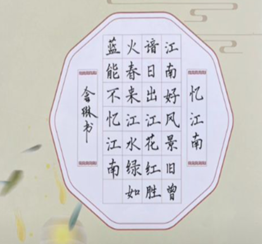 忆江南
江南好风景旧曾
谙日出江花红胜
火春来江水绿如
蓝能不忆江南
书